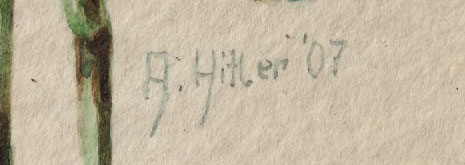 A. Hitler '07